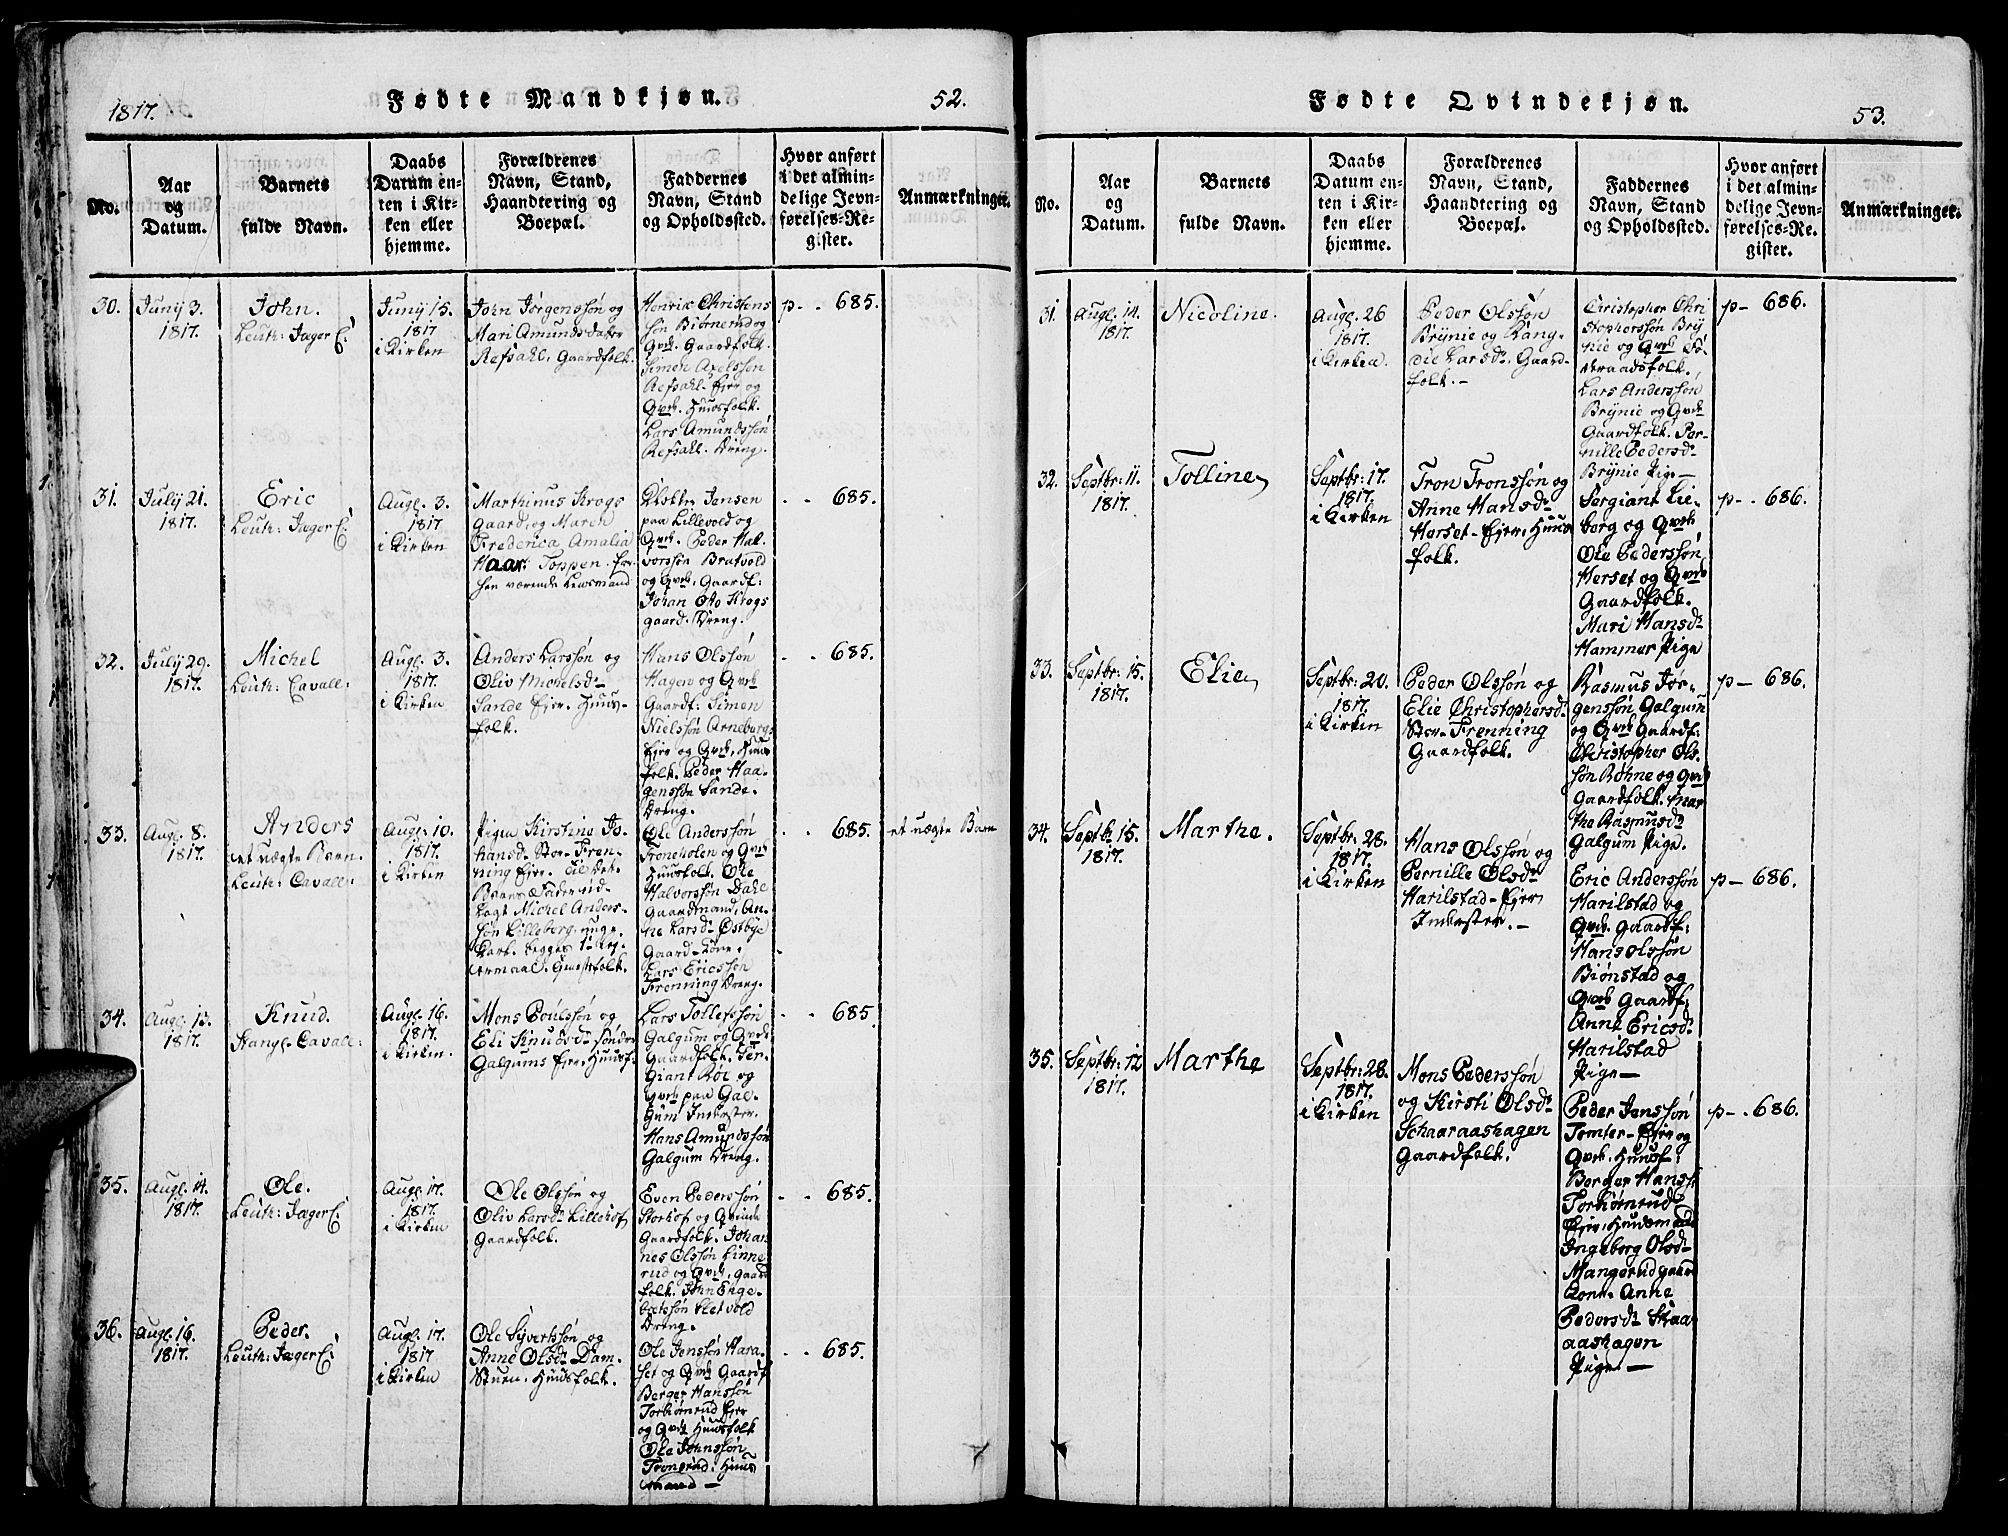 1817.
Fødte Mandkjøn.
52.
No.
Aar
og
Datum.
Barnets
fulde Navn.
Daabs
Datum en-
ten i Kir-
ken eller
hjemme.
Forældrenes
Navn, Stand,
Haandtering og
Boepæl.
Faddernes
Navn, Stand
og Opholdssted.
Hvor anført
i det almin-
delige Jevn-
førelses-Re-
gister.
Anmærkninger.
30.
Junÿ 3.
1817.
John.
Leuth: Jager C:
Junÿ 15.
1817
i Kirken
John Jörgenssön og
Mari Amundsdatter
Refsahl, Gaardfolk.
Henric Christens
sön Biörnerud og
Qvd. Gaardfolk.
Simen Axelssön
Refsahl Ejer og
Qvd. Huusfolk.
Lars Amundssön
Refsahl. Dreng.
p- . 685.
31.
Julÿ 21.
1817.
Eric
Leuth: Jæger C:
Augl. 3.
1817.
i Kirken
Marthinus Krogs
gaard, og Maren
Frederica Amalia
Haar Toppen. For
hen værende Lensmand
Klokker Jensen
paa Lillevold og
Qvd. Peder Hal
vorssön Bratvold
og Qvd. Gaardf:
Johan Oto Krogs
gaard. Dreng.
. . 685.
32.
Julÿ 29.
1817.
Michel
Leuth: Cavall:
Augl. 3.
1817.
i Kirken
Anders Larssön og
Oliv Michelsdr
Sande Ejer. Huus-
folk.
Hans Olssön
Hagen og Qvd
Gaardf: Simen
Nielssön Arneburgs
Ejer og Qvd, Huus
folk. Peder Haa-
genssön Sande.
Dreng.
. . 685.
33.
Augl. 8.
1817.
Anders
et uægte Barn.
Leuth: Cavall:
Augl. 10.
1817.
i Kirken
Pigen Kirstine Jo-
hansdr Stor- Fren-
ning Ejer. Til det
Barns Fader ud-
lagt Michel Anders-
sön Lilleberg, unge
Karl. begges 1te Lej-
ermaal. Huusfolk.
Ole Anderssön
Troneholen og Qvd
Huusfolk. Ole
Halvorssön Dahl
Gaardmand, An-
ne Larsdr Östbye
Gaard-Kone.
Lars Ericssön
Frenning Dreng.
. . 685.
et uægte Barn
34.
Augl. 13.
1817.
Knud.
Stangl. Cavall:
Augl. 16.
1817.
i Kirken.
Mons Poulssön og
Eli Knudsdr sönder
Galgums Ejer, Huusf.
Lars Tollefssön
Galgum og Qvd.
Gaardfolk. Ser-
giant Röe og
Qvd paa Gal-
gum Inderster.
Hans Amundssön
Galgum Dreng.
. . 685.
35.
Augl. 14.
1817.
Ole.
Leuth: Jager C:
Augl. 17.
1817.
i Kirken
Ole Olssön og
Oliv Larsdr Lillehof
Gaardfolk.
Even Pederssön
Storhof og Qvinde
Gaardfolk. Johan
nes Olssön Linne
rud og Qvd, gaard
folk. John Enge-
bretssön Sletvold
Dreng.
. . 685.
36.
Augl. 16.
1817.
Peder.
Leuth: Jæger C:
Augl. 17.
1817
i Kirken
Ole Syvertssön og
Anne Olsdr Dam-
stuen. Huusfolk.
Ole Jenssön Hara-
set og Qvd Gaardf
Berger Hanssön
Torbiörnrud Ejer
og Qvd Huusfolk
Ole Johnssön
Tronsrud. Huus
mand —
. . 685.
Fødte Qvindekjøn.
53.
No.
Aar
og
Datum.
Barnets
fulde Navn.
Daabs
Datum en-
ten i Kir-
ken eller
hjemme.
Forældrenes
Navn, Stand,
Haandtering og
Boepæl.
Faddernes
Navn, Stand
og Opholdssted.
Hvor anført
i det almin-
delige Jevn-
førelses-Re-
gister.
Anmærkninger.
31.
Augl. 14.
1817.
Nicoline.
Augl. 26
1817.
i Kirken.
Peder Olssön
Brÿnie og Rang-
die Larsdr. Gaard-
folk. —
Christopher Chri
stopherssön Brÿ
nie og Qvd Fö-
deraadsfolk.
Lars Anderssön
Brÿnie og Qvd
Gaardfolk. Per-
nille Pedersdr
Brÿnie Pige —
p — 686.
32.
Septbr: 11.
1817.
Tolline
Septbr: 17.
1817.
i Kirken
Tron Tronssön og
Anne Hansdr
Herset- Ejer, Huus
folk.
Sergiant Lie-
berg og Qvd
Ole Pederssön
Herset og Qvd
Gaardfolk.
Mari Hansdr
Hammer Pige
p- . 686.
33.
Septbr: 15.
1817.
Elie
Septbr: 20.
1817.
i Kirken
Peder Olssön og
Elie Christophersdr
Stor- Frenning
Gaardfolk.
Rasmus Jör-
genssön Galgum
og Qvd Gaardf:
Christopher Ols-
sön Röhne og Qvd
Gaardfolk. Mar
the Rasmusdr
Galgum Pige.
p — 686.
34.
Septbr 15.
1817.
Marthe.
Septbr: 28.
1817.
i Kirken
Hans Olssön og
Pernille Olsdr
Harilstad- Ejer
Inderster. —
Eric Anderssön
Harilstad og
Qvd. Gaardf:
Hans Olssön
Biönstad og
Qvd Gaardf.
Anne Ericsdr
Harilstad
Pige —
p — 686.
35.
Septbr: 12
1817.
Marthe
Septbr: 28.
1817.
i Kirken
Mons Pederssön
og Kirsti Olsdr
Schaaraashagen
Gaardfolk.
Peder Jenssön
Tomter- Ejer og
Qvd. Huusf:
Berger Hanss:
Torbiörnrud
Ejer, Huusmand
Ingeborg Olsdr
Mangerud gaard
Kone. Anne
Pedersdr Skaar
aashagen
Pige. —
p- . 686.